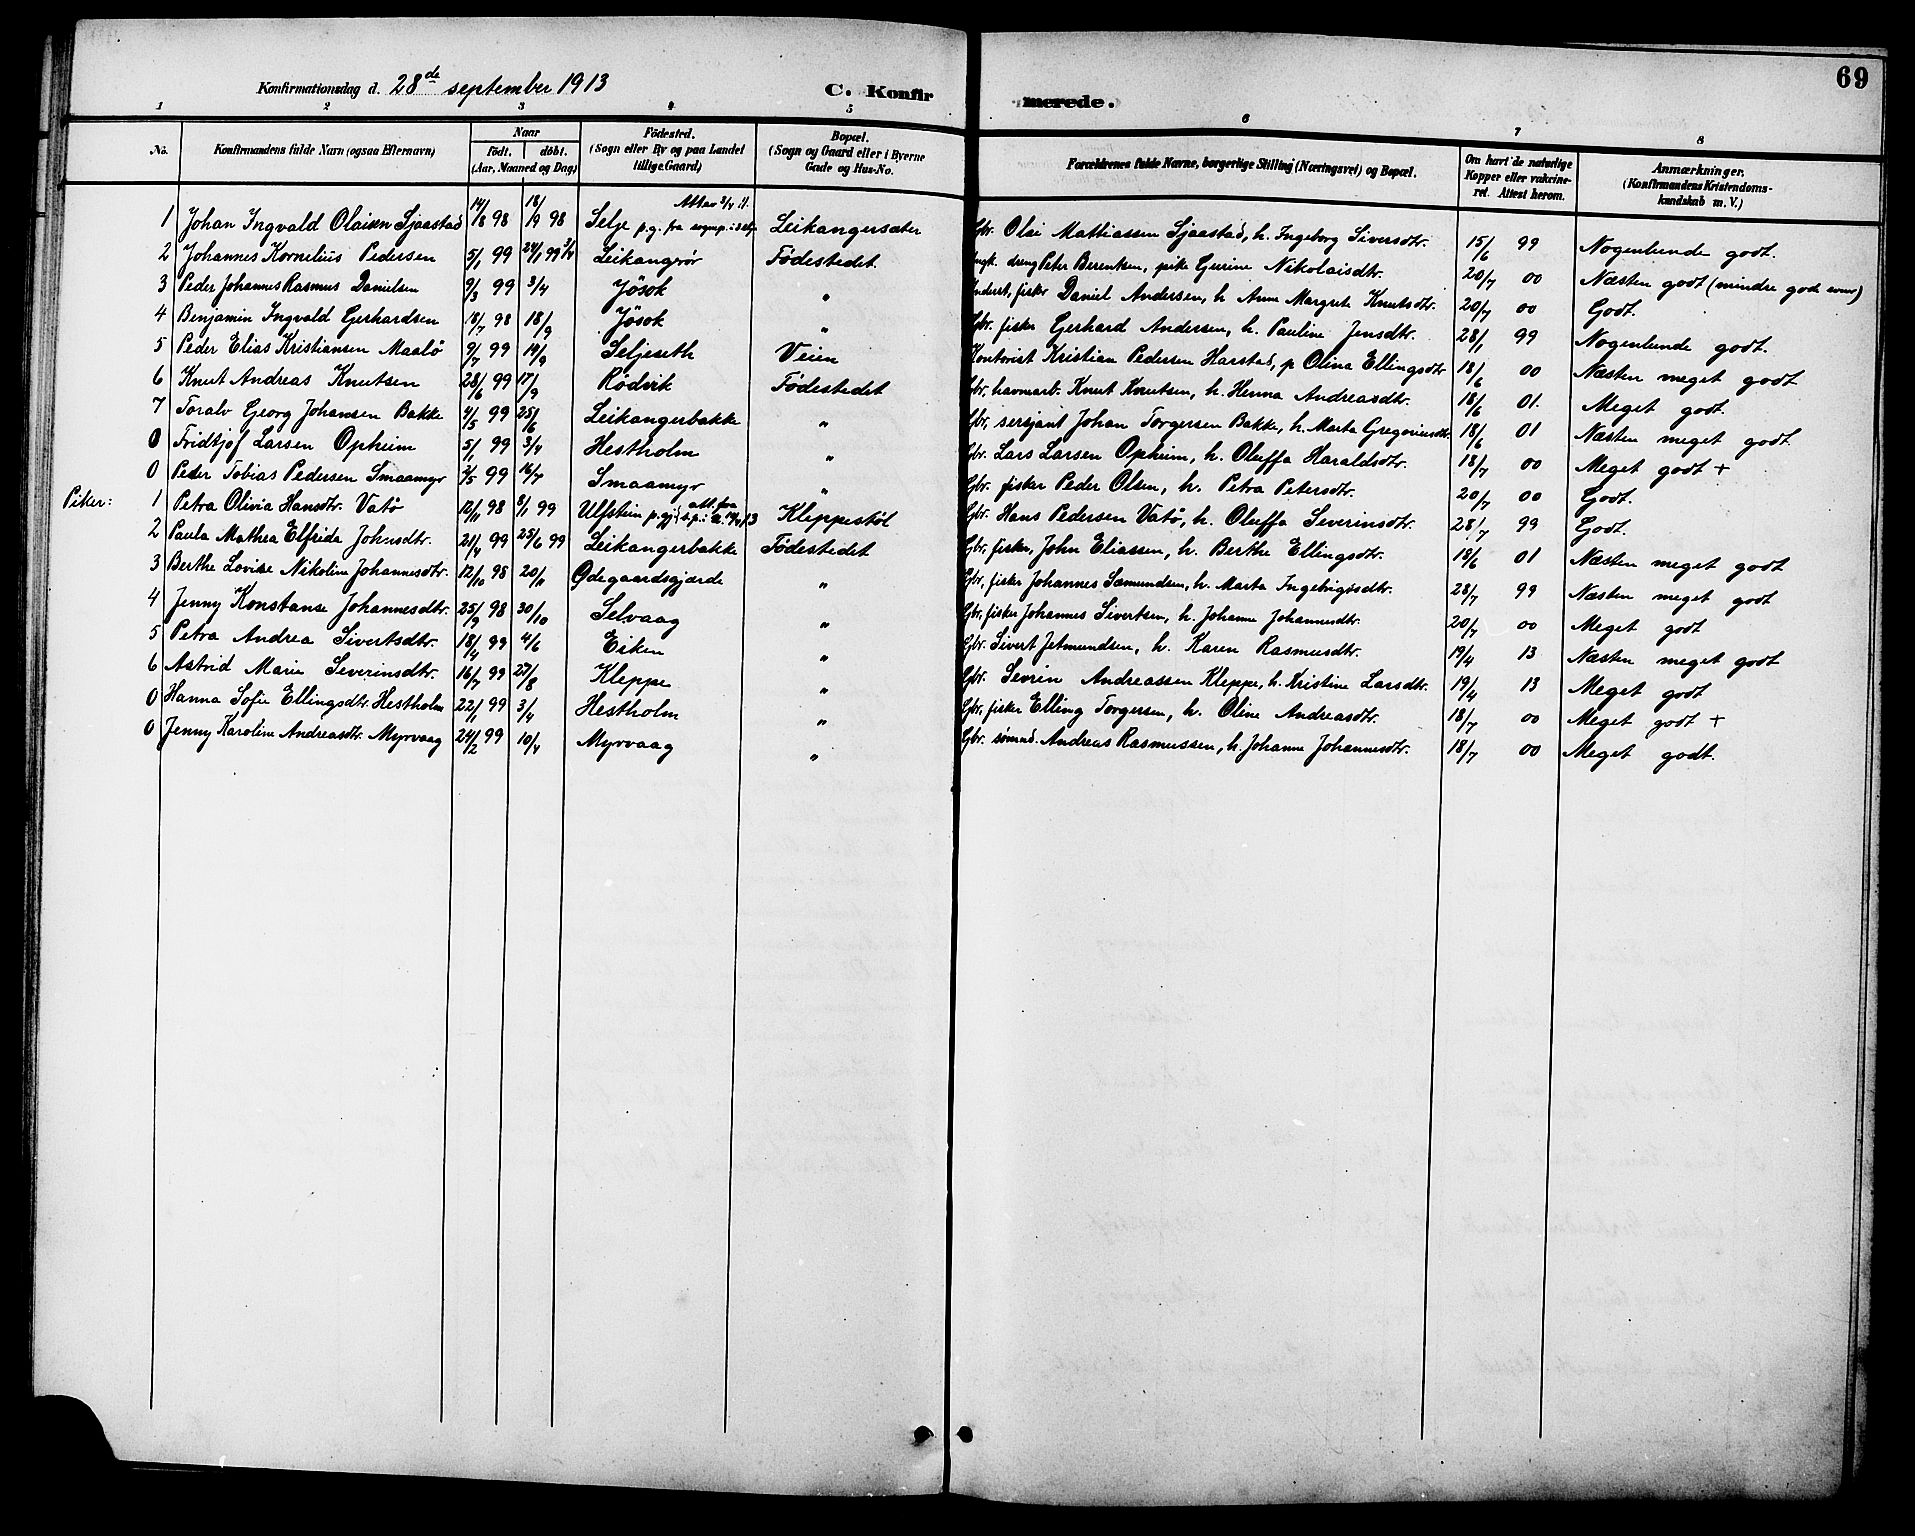 69
Konfirmationsdag d. 28de september 1913 C. Konfirmerede.
1 2 3 4 5 6 7 8
No. Konfirmandens fulde Navn (ogsaa Efternavn) Naar födt. döbt. (Aar, Maaned og Dag) Födested. (Sogn eller By og paa Landet tillige Gaard) Bopæl. (Sogn og Gaard eller i Byerne Gade og Hus-No. Forældrenes fulde Navne, borgerlige Stilling (Næringsvei) og Bopæl. Om havt de naturlige Kopper eller vakcineret. Attest herom. Anmærkninger. (Konfirmandens Kristendomskundskab m. V.)
1 Johan Ingvald Olaisen Sjaastad 14/8 98 18/9 98 Selje p.g. fra sognep. i Selje Leikangersæter Gbr. Olai Mathiassen Sjaastad, h. Ingeborg Siversdtr. 15/6 99 Nogenlunde godt.
2 Johannes Kornelius Pedersen 5/1 99 24/1 99 Leikangrör Födestedet. Ungk. dreng Peter Berentsen, pike Gurine Nikolaisdtr. 20/7 00 Næsten godt (mindre gode evner)
3 Peder Johannes Rasmus Danielsen 9/3 99 3/4 Jösok " Inderst, fisker Daniel Andersen, h. Anne Margrete Knutsdtr. 20/7 00 Godt.
4 Benjamin Ingvald Gerhardsen 18/7 98 18/9 Jösok " Gbr. fisker Gerhard Andersen, h. Pauline Jensdtr. 28/1 99 Nogenlunde godt.
5 Peder Elias Kristiansen Maalö 9/7 99 14/9 Seljeseth Veien Kontorist Kristian Pedersen Harstad, p Olina Ellingsdtr 18/6 00 Næsten meget godt
6 Knut Andreas Knutsen 28/6 99 17/9 Rödvik Födestedet Gbr. havnarb. Knut Knutsen, h. Henna Andreasdtr. 18/6 01. Meget godt.
7 Toralv Georg Johansen Bakke 4/5 99 25/6 Leikangerbakke " Gbr, sersjant Johan Torgersen Bakke, h. Marta Gregoriusdtr. 18/6 01 Næsten meget godt.
0 Fridtjof Larsen Opheim 5/1 99 3/4 Hestholm " Gbr. Lars Larsen Opheim, h. Oluffa Haraldsdtr. 18/7 00 Meget godt +
0 Peder Tobias Pedersen Smaamyr 3/5 99 16/7 Smaamyr " Gbr. fisker Peder Olsen, h. Petra Petersdtr. 20/7 00 Godt.
Piker: 1 Petra Olivia Hansdtr. Vatö 12/11 98 8/1 99 Ulfstein Kleppestöl Gbr. Hans Pedersen Vatö, h. Oluffa Severinsdtr. 28/7 99 Godt.
2 Paula Mathea Elfrida Johnsdtr. 21/4 99 25/6 99 Leikangerbakke Födestedet Gbr, fisker, John Eliassen, h. Berthe Ellingsdtr. 18/6 01 Næsten meget godt
3 Berthe Lovise Nikoline Johannesdtr. 12/10 98 20/11 Ödegaardsgjærde " Gbr, fisker Johannes Samundsen, h. Marta Ingebrigtsdtr. 28/7 99 Næsten meget godt
4 Jenny Konstanse Johannesdtr. 25/9 98 30/10 Selvaag " Gbr, fisker Johannes Sivertsen, h. Johanne Johannesdtr. 20/7 00 Meget godt
5 Petra Andrea Sivertsdtr. 18/4 99 4/6 Eiken " Gbr. Sivert Jetmundsen, h. Karen Rasmusdtr. 19/4 13 Næsten meget godt
6 Astrid Marie Severinsdtr. 16/7 99 27/8 Kleppe " Gbr. Sevrin Andreassen Kleppe, h. Kristine Larsdtr. 19/4 13 Meget godt
0 Hanna Sofie Ellingsdtr. Hestholm 22/1 99 3/4 Hestholm " Gbr, fisker Elling Torgersen, h. Oline Andreasdtr. 18/7 00 Meget godt +
0 Jenny Karoline Andreasdtr. Myrvaag 24/2 99 10/4 Myrvaag " Gbr. sömnd. Andreas Rasmussen, h. Johanne Johannesdtr. 18/7 00 Meget godt.